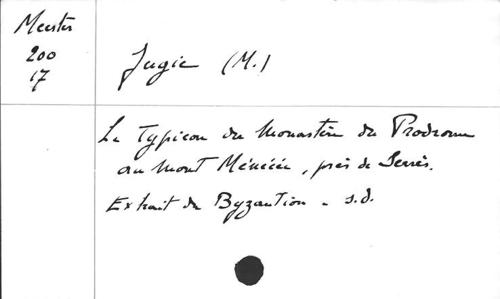 Mercier
200
17
Jugie (M.)
Le Typicon du Monastère du Prodrome
au Mont Ménécée, près de Serrès.
Extrait de Byzantion - s.d.